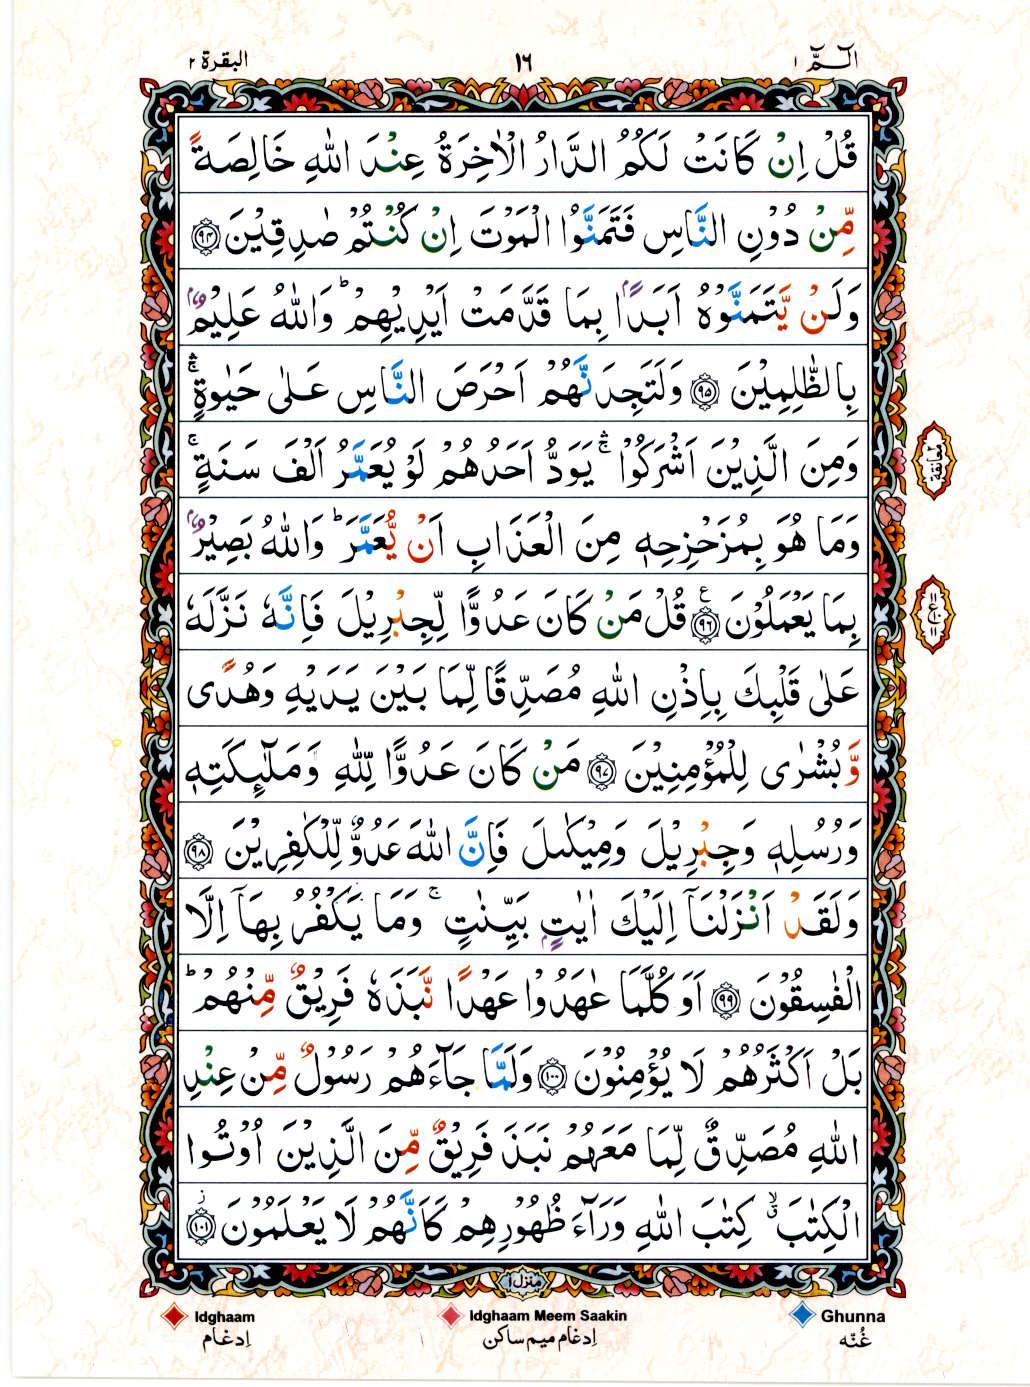 الٓـمّٓ ١
١٦
البقرة ٢
قُلْ اِنْ كَانَتْ لَكُمُ الدَّارُ الْاٰخِرَةُ عِنْدَ اللّٰهِ خَالِصَةً
مِّنْ دُوْنِ النَّاسِ فَتَمَنَّوُا الْمَوْتَ اِنْ كُنْتُمْ صٰدِقِيْنَ ﴿٩٤﴾
وَلَنْ يَّتَمَنَّوْهُ اَبَدًۢا بِمَا قَدَّمَتْ اَيْدِيْهِمْ ؕ وَاللّٰهُ عَلِيْمٌۢ
بِالظّٰلِمِيْنَ ﴿٩٥﴾ وَلَتَجِدَنَّهُمْ اَحْرَصَ النَّاسِ عَلٰى حَيٰوةٍ ۛۚ
وَمِنَ الَّذِيْنَ اَشْرَكُوْا ۛۚ يَوَدُّ اَحَدُهُمْ لَوْ يُعَمَّرُ اَلْفَ سَنَةٍ ۚ
وَمَا هُوَ بِمُزَحْزِحِهٖ مِنَ الْعَذَابِ اَنْ يُّعَمَّرَ ؕ وَاللّٰهُ بَصِيْرٌۢ
بِمَا يَعْمَلُوْنَ ﴿٩٦﴾ ع قُلْ مَنْ كَانَ عَدُوًّا لِّجِبْرِيْلَ فَاِنَّهٗ نَزَّلَهٗ
عَلٰى قَلْبِكَ بِاِذْنِ اللّٰهِ مُصَدِّقًا لِّمَا بَيْنَ يَدَيْهِ وَهُدًى
وَّبُشْرٰى لِلْمُؤْمِنِيْنَ ﴿٩٧﴾ مَنْ كَانَ عَدُوًّا لِّلّٰهِ وَمَلٰٓئِكَتِهٖ
وَرُسُلِهٖ وَجِبْرِيْلَ وَمِيْكٰىلَ فَاِنَّ اللّٰهَ عَدُوٌّ لِّلْكٰفِرِيْنَ ﴿٩٨﴾
وَلَقَدْ اَنْزَلْنَاۤ اِلَيْكَ اٰيٰتٍۭ بَيِّنٰتٍ ۚ وَمَا يَكْفُرُ بِهَاۤ اِلَّا
الْفٰسِقُوْنَ ﴿٩٩﴾ اَوَكُلَّمَا عٰهَدُوْا عَهْدًا نَّبَذَهٗ فَرِيْقٌ مِّنْهُمْ ؕ
بَلْ اَكْثَرُهُمْ لَا يُؤْمِنُوْنَ ﴿١٠٠﴾ وَلَمَّا جَآءَهُمْ رَسُوْلٌ مِّنْ عِنْدِ
اللّٰهِ مُصَدِّقٌ لِّمَا مَعَهُمْ نَبَذَ فَرِيْقٌ مِّنَ الَّذِيْنَ اُوْتُوا
الْكِتٰبَ ۙۗ كِتٰبَ اللّٰهِ وَرَآءَ ظُهُوْرِهِمْ كَاَنَّهُمْ لَا يَعْلَمُوْنَ ز ﴿١٠١﴾
معانقة
منزل ١
Idghaam
Idghaam Meem Saakin
Ghunna
اِدغام
اِدغام میم ساکن
غُنّه